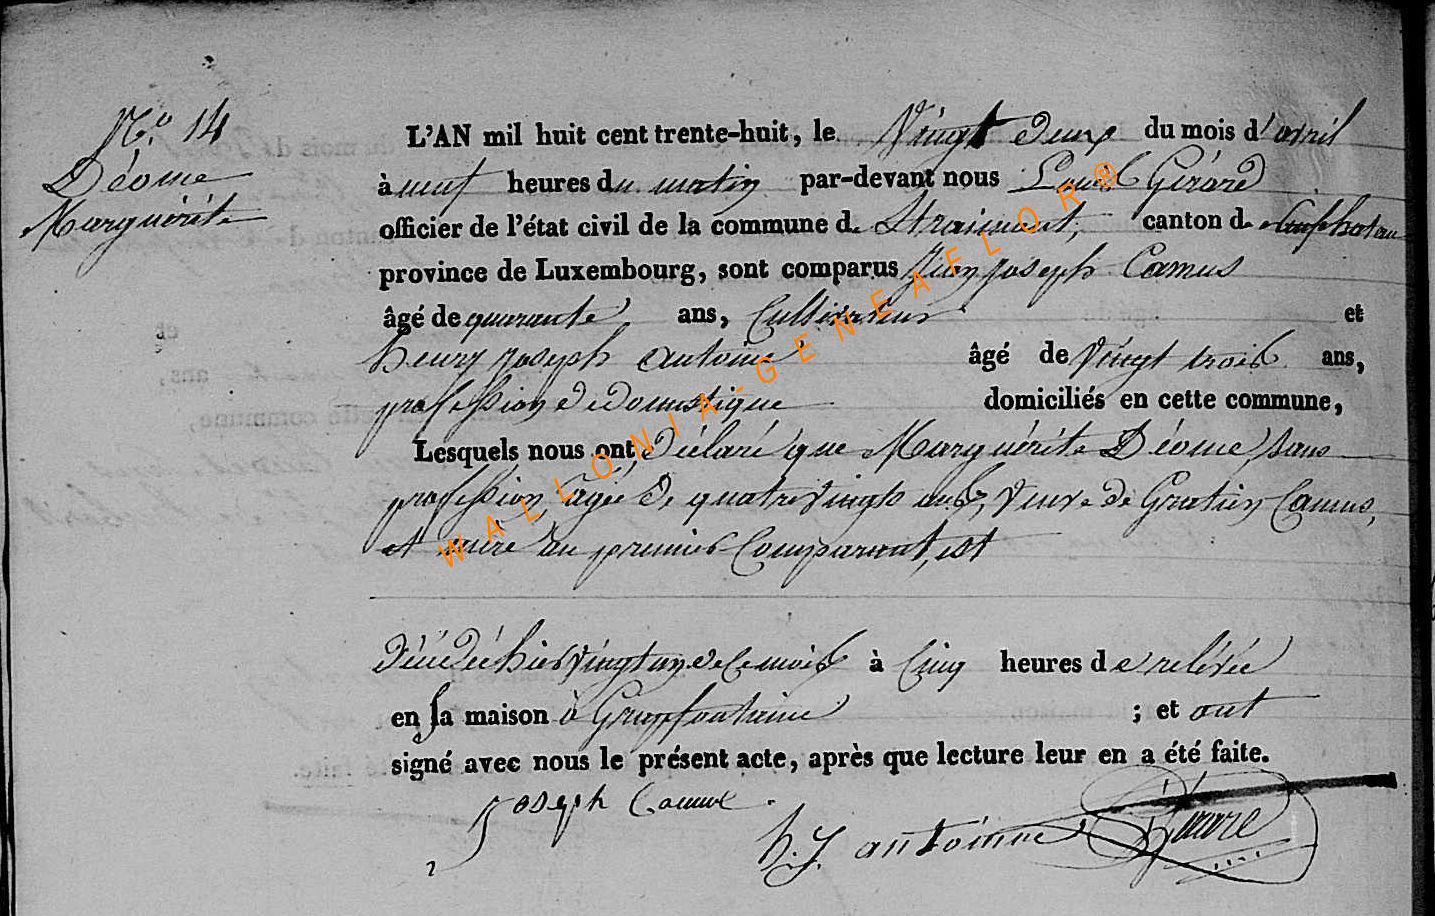 N.o 14
Déome
Marguérite
L'AN mil huit cent trente-huit, le Vingt deux du mois d'avril
à neuf heures du matin par-devant nous Louis Gérard
officier de l'état civil de la commune de Straimont, canton de Neufchateau
province de Luxembourg, sont comparus Jean joseph Camus
âgé de quarante ans, Cultivateur et
henry joseph antoine âgé de Vingt trois ans,
profession de domestique domiciliés en cette commune,
Lesquels nous ont Déclaré que Marguérite Déome, sans
profession, agée de quatre vingts ans, Veuve de Gratien Camus,
et mère du premier Comparant, est
Décédée hier Vingt un de ce mois à Cinq heures de relévée
en sa maison à Grapfontaine ; et ont
signé avec nous le présent acte, après que lecture leur en a été faite.
Joseph Camus
h. J. antoinne Girard
WALLONIA-GENEAFLOR®